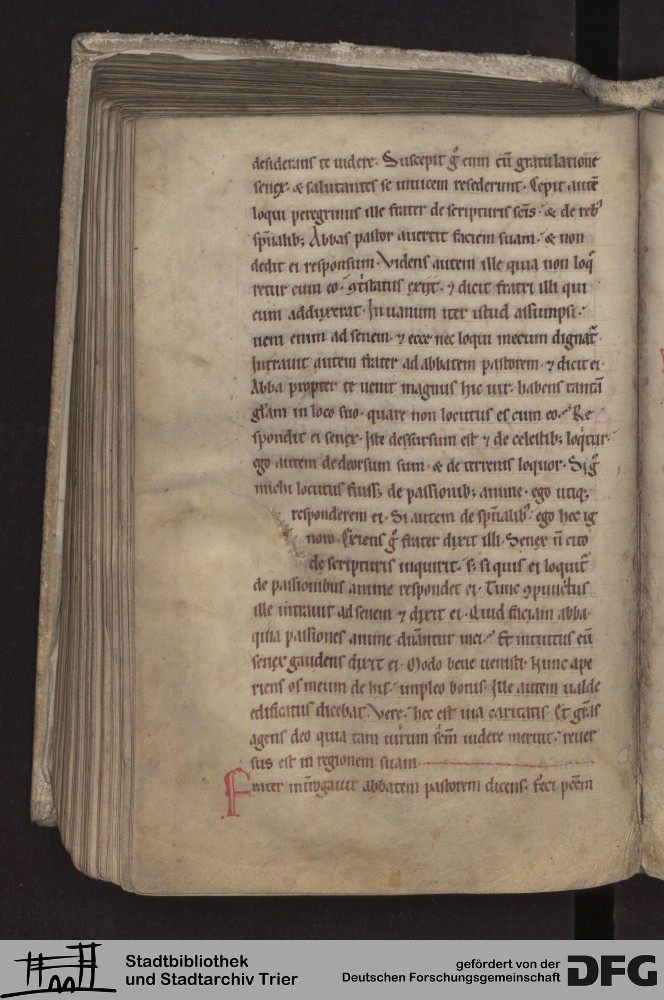 desiderans te uidere. Suscepit gͦ eum cū gratulatione
senex. & salutantes se inuicem resederunt. Cepit autē
loqui peregrinus ille frater de scripturis scīs. & de reb᾽
sp̄ualib; Abbas pastor auertit faciem suam. & non
dedit ei responsum. Videns autem ille quia non loq̄
retur cum eo. ꝯtͥstatus exiit. ⁊ dicit fratri illi qui
eum adduxerat. In uanum iter istud assumpsi.
ueni enim ad senem. ⁊ ecce nec loqui mecum dignat᷑.
Intrauit autem frater ad abbatem pastorem. ⁊ dicit ei.
Abba propter te uenit magnus hic uir. habens tantā
gl̄am in loco suo. quare non locutus es cum eo. Re
spondit ei senex. Iste desursum est ⁊ de celestib; loq̇tur.
ego autem dedeorsum sum. & de terrenis loquor. Si gͦ
michi locutus fuiss; de passionib; anime. ego utiq;
responderem ei. Si autem de sp̄ualib᾽ ego hec ig
noro. Exiens gͦ frater dixit illi. Senex n̄ cito
de scripturis inquirit. s; si quis ei loquit᷑
de passionibus anime respondet ei. Tunc ꝯpunctus
ille intrauit ad senem ⁊ dixit ei. Quid faciam abba.
quia passiones anime dn̄antur mei. Et intuitus eū
senex gaudens dixit ei. Modo bene uenisti. Nunc ape
riens os meum de his. impleo bonis. Ille autem ualde
edificatus dicebat. Vere. hec est uia caritatis. Et gr̄as
agens deo quia tam uirum sc̄m uidere meruit. reuer
sus est in regionem suam
Frater int̄rogauit abbatem pastorem dicens. Feci pcc̄m
Stadtbibliothek
und Stadtarchiv Trier
gefördert von der
Deutschen Forschungsgemeinschaft
DFG